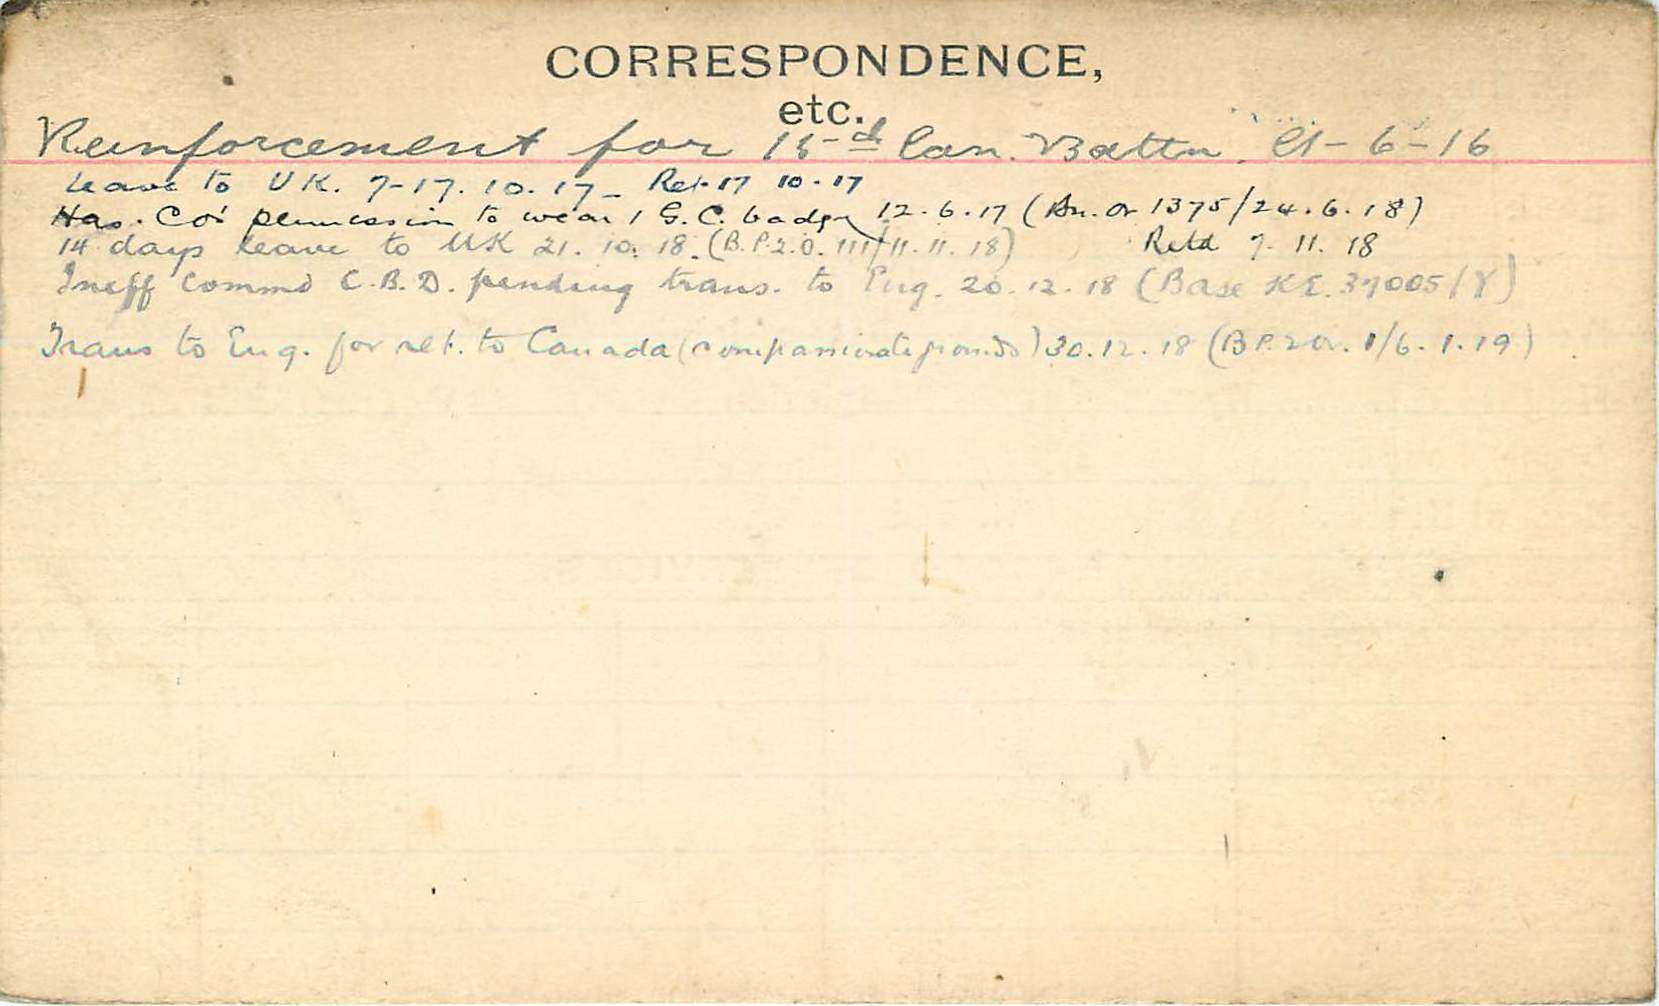 CORRESPONDENCE,
etc.
Reinforcement for Can. Battn. -6-16
Leave to UK. 7-17.10.17 - Ret. 17 10.17
Has CO's permission to wear 1 G.C. badge 12.6.17 (Bn. Or 1375/24.6.18)
14 days leave to UK 21.10.18. (B.P.2.O. 111/11.11.18) Retd 7.11.18
Ineff Commd C.B.D. pending trans. to Eng. 20.12.18 (Base KE. 37005/8)
Trans to Eng. for ret. to Canada (compassionate grounds) 30.12.18 (B.P.2 Or. 1/6.1.19)